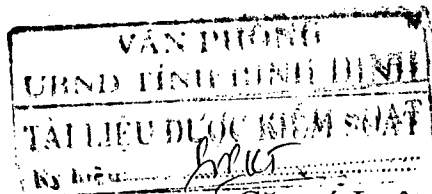 VĂN PHÒNG
UBND TỈNH BÌNH ĐỊNH
TÀI LIỆU ĐƯỢC KIỂM SOÁT
Ký hiệu